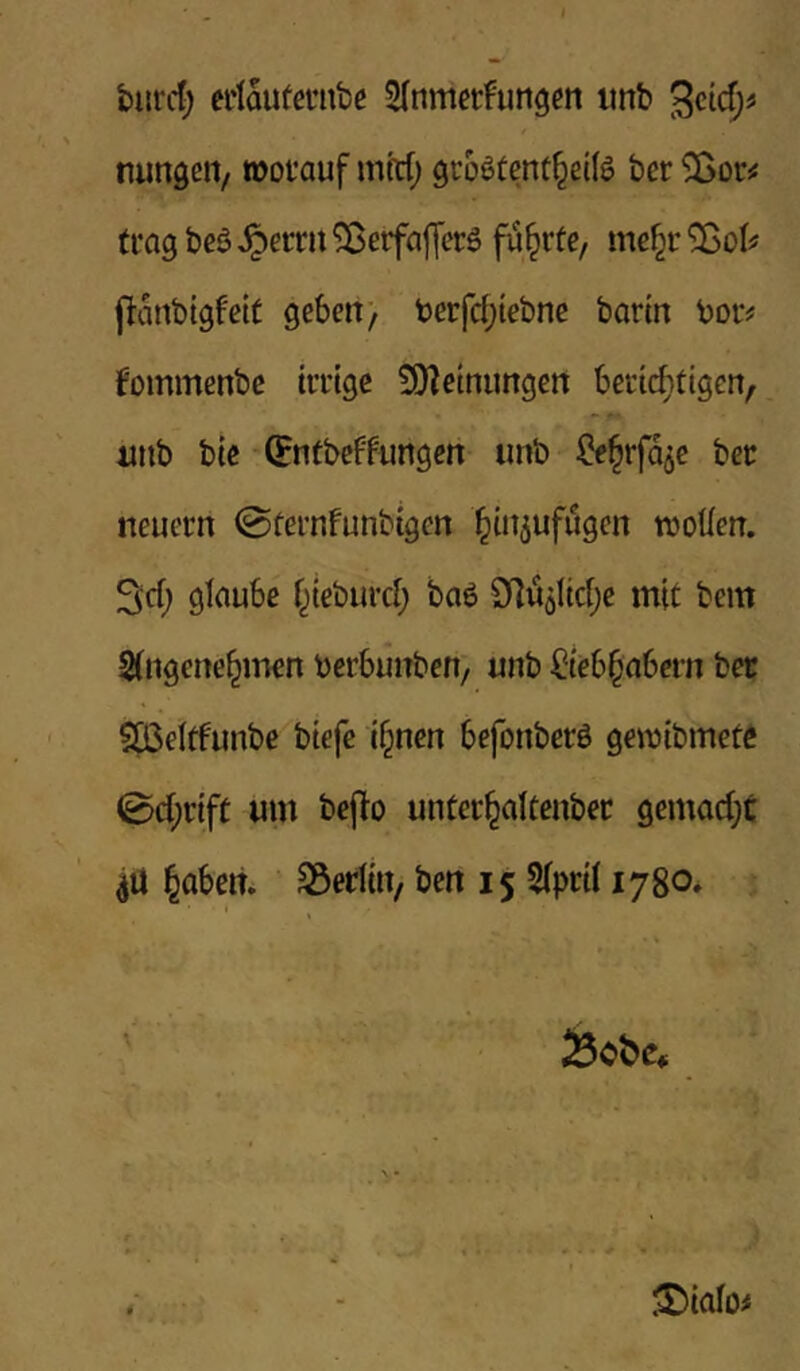 durch erläuternde Anmerkungen und Zeich⸗
nungen, worauf mich gröstentheils der Vor⸗
trag des Herrn Verfassers führte, mehr Vol⸗
ständigkeit geben, verschiedne darin vor⸗
kommende irrige Meinungen berichtigen,
und die Entdekkungen und Lehrsäze der
neuern Sternkundigen hinzufügen wollen.
Ich glaube hiedurch das Nüzliche mit dem
Angenehmen verbunden, und Liebhabern der
Weltkunde diese ihnen besonders gewidmete
Schrift um desto unterhaltender gemacht
zu haben. Berlin, den 15 April 1780.
Bode.
Dialo⸗